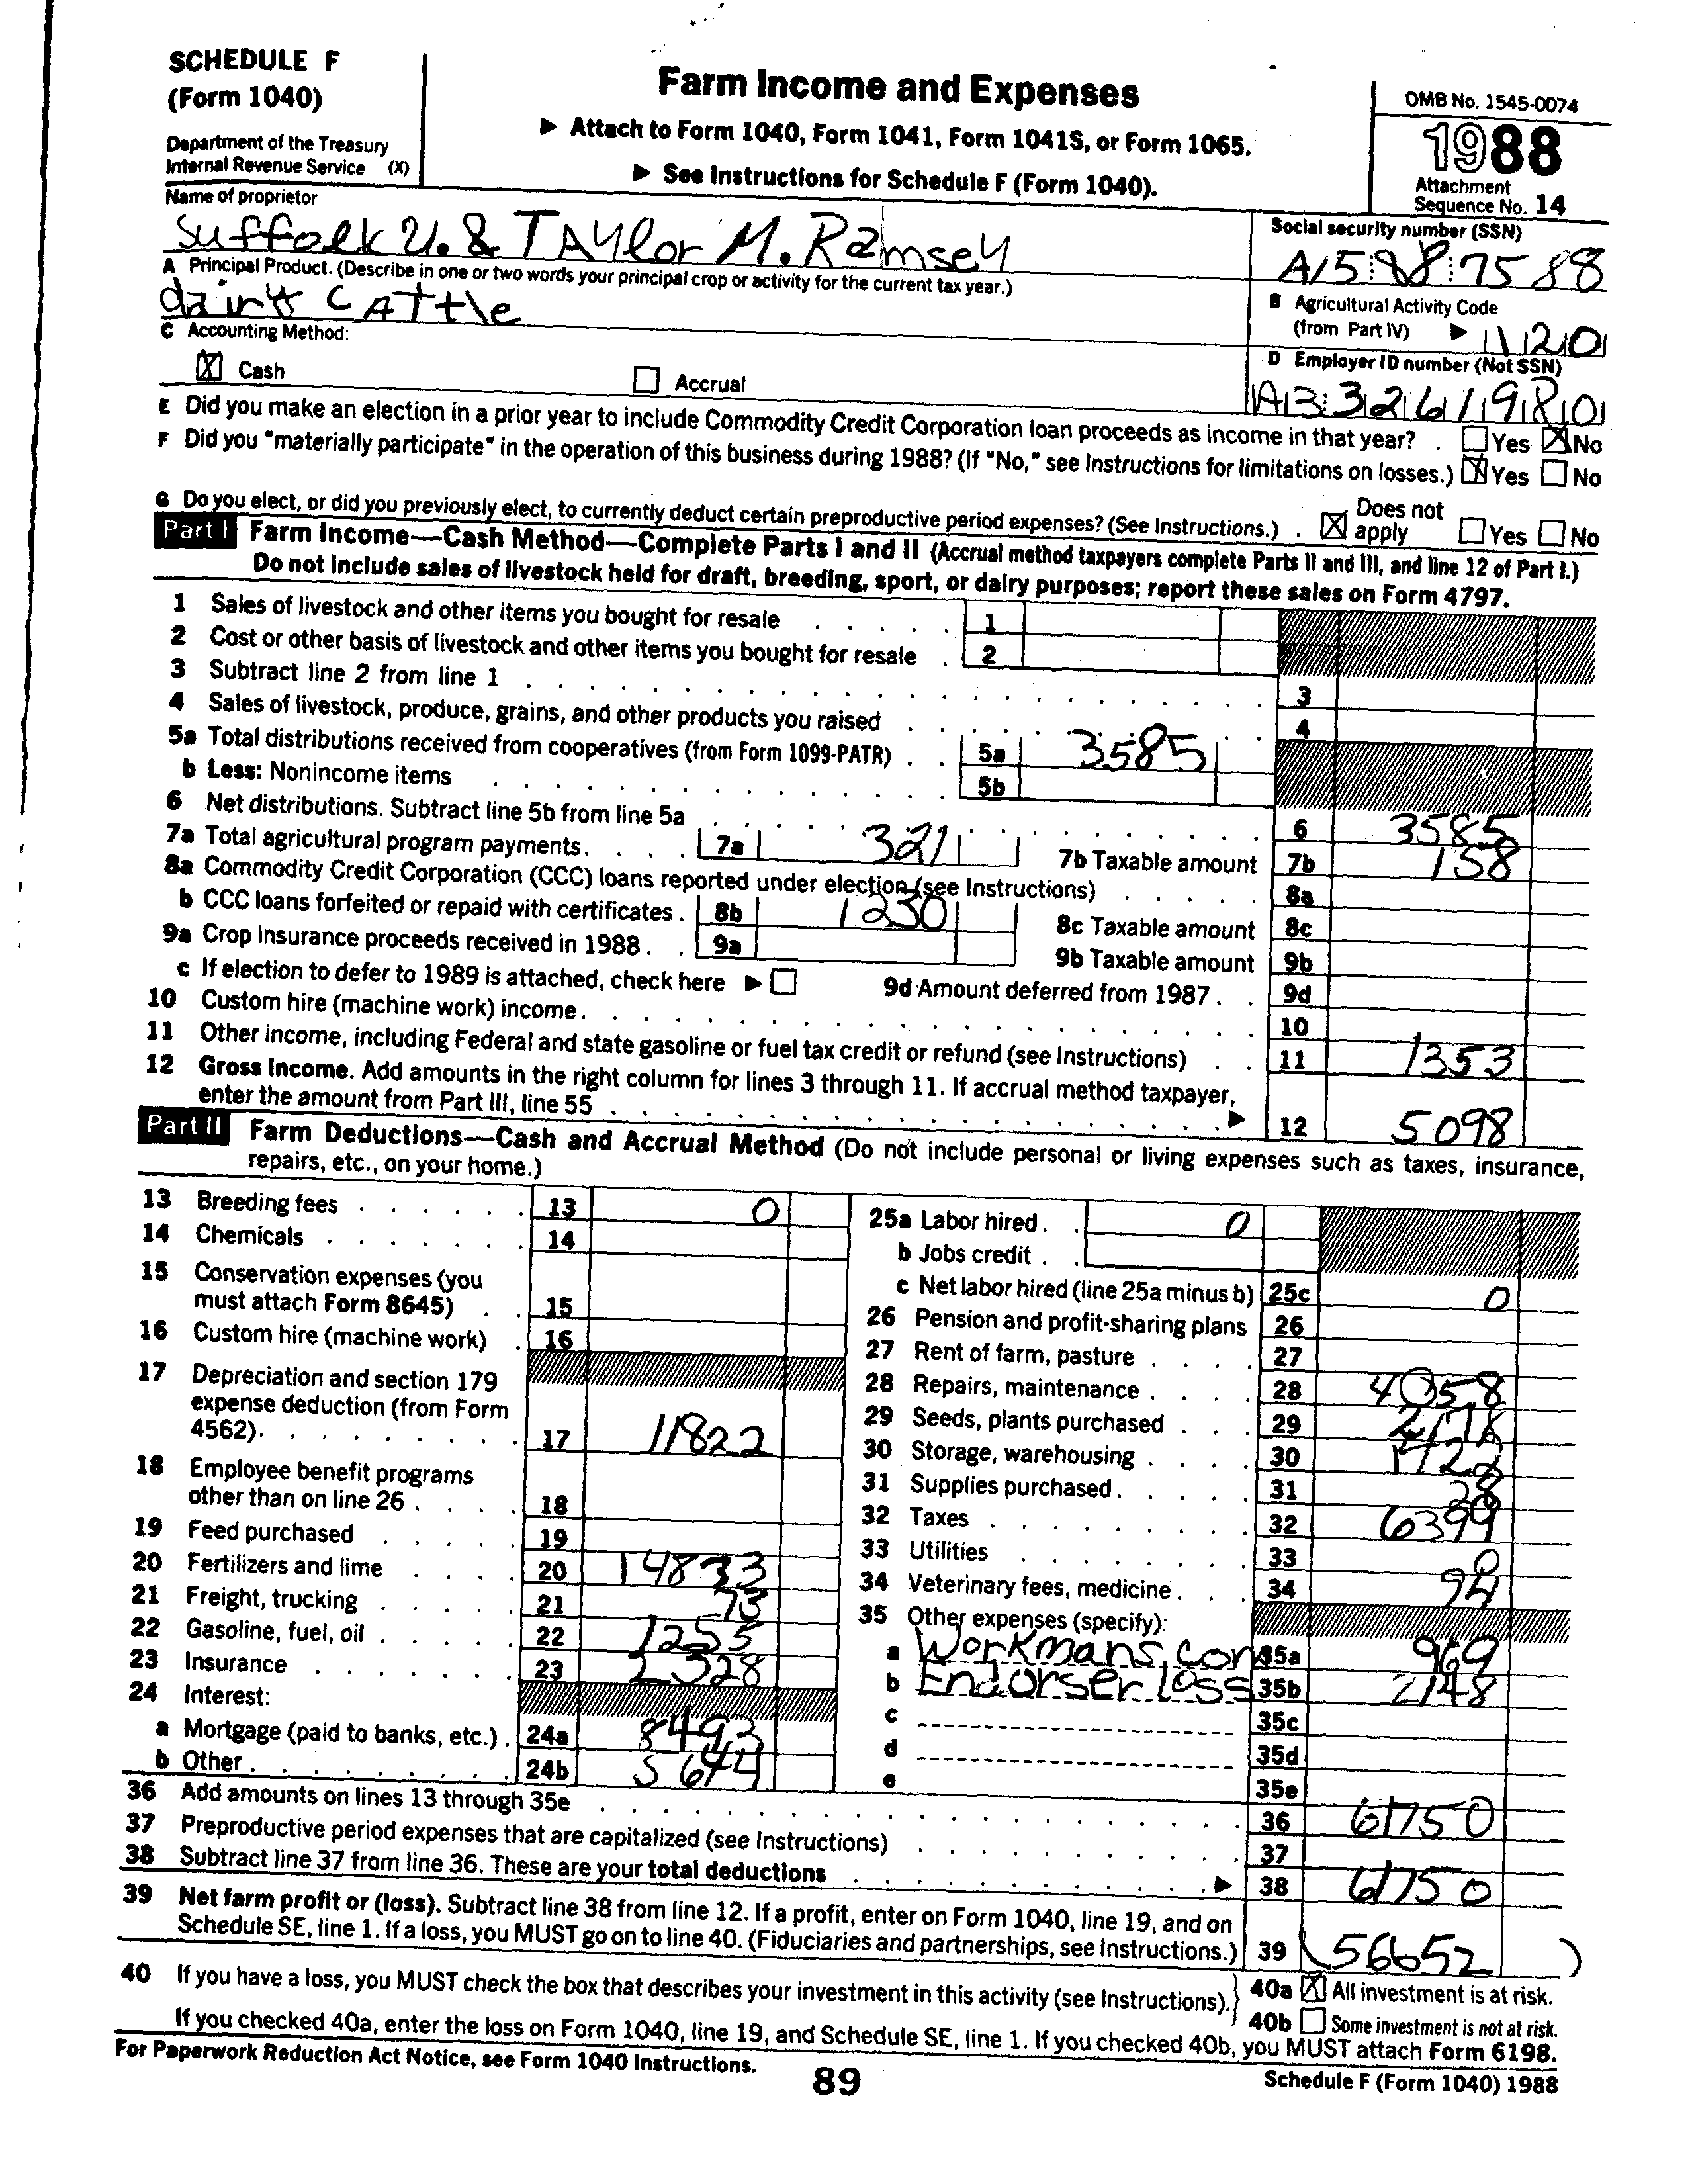 SCHEDULE F
(Form 1040)
Department of the Treasury
Internal Revenue Service (X)
Farm Income and Expenses
▶ Attach to Form 1040, Form 1041, Form 1041S, or Form 1065.
▶ See Instructions for Schedule F (Form 1040).
OMB No. 1545-0074
1988
Attachment
Sequence No. 14
Name of proprietor
Suffolk U. & TAYlor M. Ramsey
Social security number (SSN)
A15 88 7588
A Principal Product. (Describe in one or two words your principal crop or activity for the current tax year.)
CATTle
B Agricultural Activity Code
(from Part IV) ▶ 1120
C Accounting Method:
☒ Cash ☐ Accrual
D Employer ID number (Not SSN)
A33261980
E Did you make an election in a prior year to include Commodity Credit Corporation loan proceeds as income in that year? . ☐ Yes ☒ No
F Did you "materially participate" in the operation of this business during 1988? (If "No," see Instructions for limitations on losses.) ☒ Yes ☐ No
G Do you elect, or did you previously elect, to currently deduct certain preproductive period expenses? (See Instructions.) . ☒ Does not apply ☐ Yes ☐ No
Part I Farm Income—Cash Method—Complete Parts I and II (Accrual method taxpayers complete Parts II and III, and line 12 of Part I.)
Do not include sales of livestock held for draft, breeding, sport, or dairy purposes; report these sales on Form 4797.
1 Sales of livestock and other items you bought for resale 1
2 Cost or other basis of livestock and other items you bought for resale 2
3 Subtract line 2 from line 1 3
4 Sales of livestock, produce, grains, and other products you raised 4
5a Total distributions received from cooperatives (from Form 1099-PATR) 5a 3585
b Less: Nonincome items 5b
6 Net distributions. Subtract line 5b from line 5a 6 3585
7a Total agricultural program payments. 7a 321 7b Taxable amount 7b 158
8a Commodity Credit Corporation (CCC) loans reported under election (see Instructions) 8a
b CCC loans forfeited or repaid with certificates . 8b 1230 8c Taxable amount 8c
9a Crop insurance proceeds received in 1988 . 9a 9b Taxable amount 9b
c If election to defer to 1989 is attached, check here ▶ ☐ 9d Amount deferred from 1987 . 9d
10 Custom hire (machine work) income. 10
11 Other income, including Federal and state gasoline or fuel tax credit or refund (see Instructions) 11 1353
12 Gross Income. Add amounts in the right column for lines 3 through 11. If accrual method taxpayer,
enter the amount from Part III, line 55 ▶ 12 5098
Part II Farm Deductions—Cash and Accrual Method (Do not include personal or living expenses such as taxes, insurance,
repairs, etc., on your home.)
13 Breeding fees 13 0
14 Chemicals 14
15 Conservation expenses (you
must attach Form 8645) 15
16 Custom hire (machine work) 16
17 Depreciation and section 179
expense deduction (from Form
4562). 17 11822
18 Employee benefit programs
other than on line 26 18
19 Feed purchased 19
20 Fertilizers and lime 20 14833
21 Freight, trucking 21 73
22 Gasoline, fuel, oil 22 1255
23 Insurance 23 2328
24 Interest:
a Mortgage (paid to banks, etc.) . 24a 8493
b Other 24b 5644
25a Labor hired . 0
b Jobs credit .
c Net labor hired (line 25a minus b) 25c 0
26 Pension and profit-sharing plans 26
27 Rent of farm, pasture 27
28 Repairs, maintenance 28 4058
29 Seeds, plants purchased 29 2178
30 Storage, warehousing 30 1428
31 Supplies purchased . 31 28
32 Taxes 32 6399
33 Utilities 33 0
34 Veterinary fees, medicine . 34 94
35 Other expenses (specify):
a Workmans com 35a 969
b Endorser loss 35b 2148
c 35c
d 35d
e 35e
36 Add amounts on lines 13 through 35e 36 61750
37 Preproductive period expenses that are capitalized (see Instructions) 37
38 Subtract line 37 from line 36. These are your total deductions ▶ 38 61750
39 Net farm profit or (loss). Subtract line 38 from line 12. If a profit, enter on Form 1040, line 19, and on
Schedule SE, line 1. If a loss, you MUST go on to line 40. (Fiduciaries and partnerships, see Instructions.) 39 (56652)
40 If you have a loss, you MUST check the box that describes your investment in this activity (see Instructions). 40a ☒ All investment is at risk.
40b ☐ Some investment is not at risk.
If you checked 40a, enter the loss on Form 1040, line 19, and Schedule SE, line 1. If you checked 40b, you MUST attach Form 6198.
For Paperwork Reduction Act Notice, see Form 1040 Instructions.
89
Schedule F (Form 1040) 1988